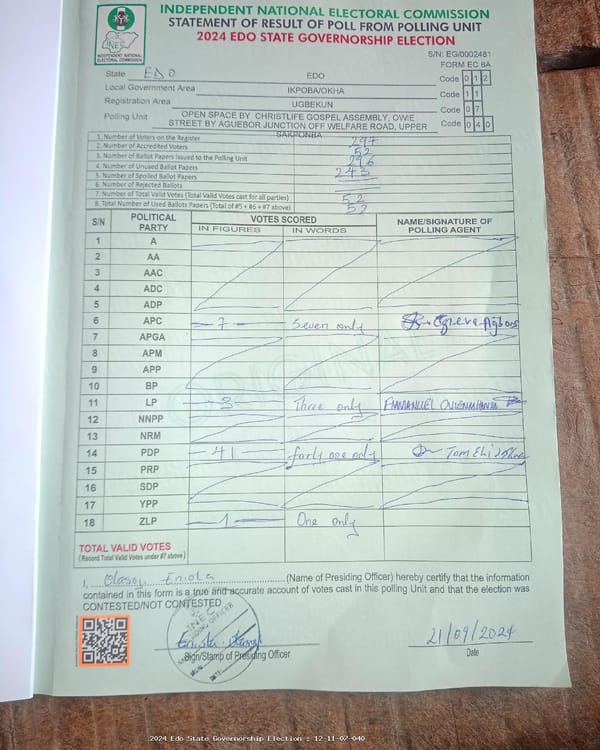 INDEPENDENT NATIONAL ELECTORAL COMMISSION
STATEMENT OF RESULT OF POLL FROM POLLING UNIT
2024 EDO STATE GOVERNORSHIP ELECTION
INEC
INDEPENDENT NATIONAL ELECTORAL COMMISSION
S/N: EG/0002481
FORM EC 8A
State EDO EDO Code 0 1 2
Local Government Area IKPOBA/OKHA Code 1 1
Registration Area UGBEKUN Code 0 7
Polling Unit OPEN SPACE BY CHRISTLIFE GOSPEL ASSEMBLY, OWIE STREET BY AGUEBOR JUNCTION OFF WELFARE ROAD, UPPER SAKPONBA Code 0 4 0
1. Number of Voters on the Register 297
2. Number of Accredited Voters 52
3. Number of Ballot Papers Issued to the Polling Unit 296
4. Number of Unused Ballot Papers 243
5. Number of Spoiled Ballot Papers
6. Number of Rejected Ballots
7. Number of Total Valid Votes (Total Valid Votes cast for all parties) 52
8. Total Number of Used Ballots Papers (Total of #5 + #6 + #7 above) 52
S/N POLITICAL PARTY VOTES SCORED NAME/SIGNATURE OF POLLING AGENT
IN FIGURES IN WORDS
1 A
2 AA
3 AAC
4 ADC
5 ADP
6 APC 7 Seven only
7 APGA
8 APM
9 APP
10 BP
11 LP 3 Three only EMMANUEL
12 NNPP
13 NRM
14 PDP 41 forty one only Tom
15 PRP
16 SDP
17 YPP
18 ZLP 1 One only
TOTAL VALID VOTES
(Record Total Valid Votes under #7 above)
I, Eniola (Name of Presiding Officer) hereby certify that the information
contained in this form is a true and accurate account of votes cast in this polling Unit and that the election was
CONTESTED/NOT CONTESTED
INEC
PRESIDING OFFICER
21/09/2024
Sign/Stamp of Presiding Officer Date
2024 Edo State Governorship Election : 12-11-07-040